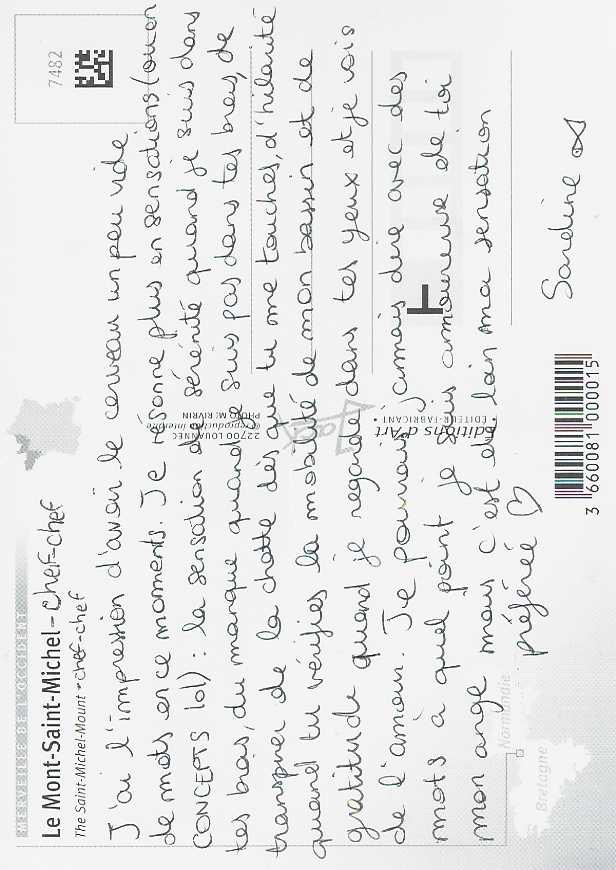 MERVEILLE DE L'OCCIDENT
Le Mont-Saint-Michel - chef-chef
The Saint-Michel-Mount - chef-chef
7482
J'ai l'impression d'avoir le cerveau un peu vide
de mots en ce moments. Je résonne plus en sensations (ou en
CONCEPTS lol) : la sensation de sérénité quand je suis dans
tes bras, du manque quand je suis pas dans tes bras, de
transpirer de la chatte dès que tu me touches, d'hilarité
quand tu vérifies la mobilité de mon bassin et de
gratitude quand je regarde dans tes yeux et je vois
de l'amour. Je pourrais jamais dire avec des
mots à quel point je suis amoureuse de toi
mon ange mais c'est de loin ma sensation
préférée ♡
Sardine
Editions d'Art
Jack
• ÉDITEUR-FABRICANT •
22700 LOUANNEC
© reproduction interdite
PHOTO M. RIVRIN
Normandie
Bretagne
3 660081 000015